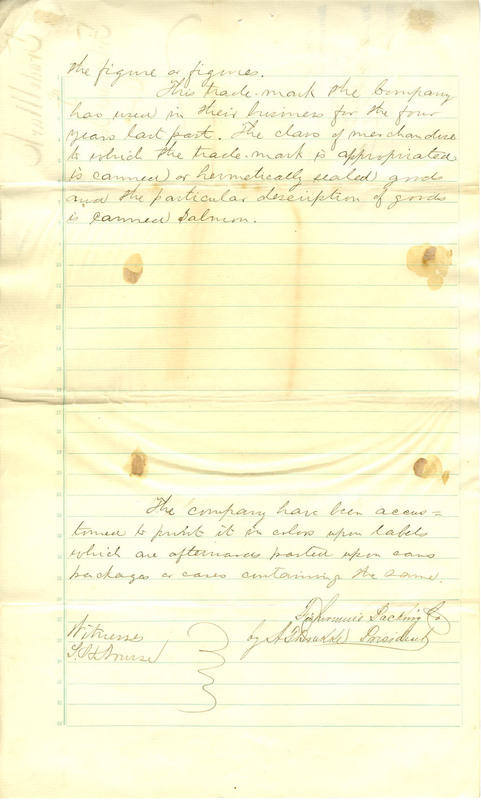 the figure or figures.
This trade-mark the Company
has used in their business for the four
years last past. The class of merchandise
to which the trade-mark is appropriated
is canned or hermetically sealed goods
and the particular description of goods
is canned Salmon.
The company have been accus=
tomed to print it in colors upon labels
which are afterwards pasted upon cans
packages or cases containing the same.
Fishermen's Packing Co
by President
Witnesses